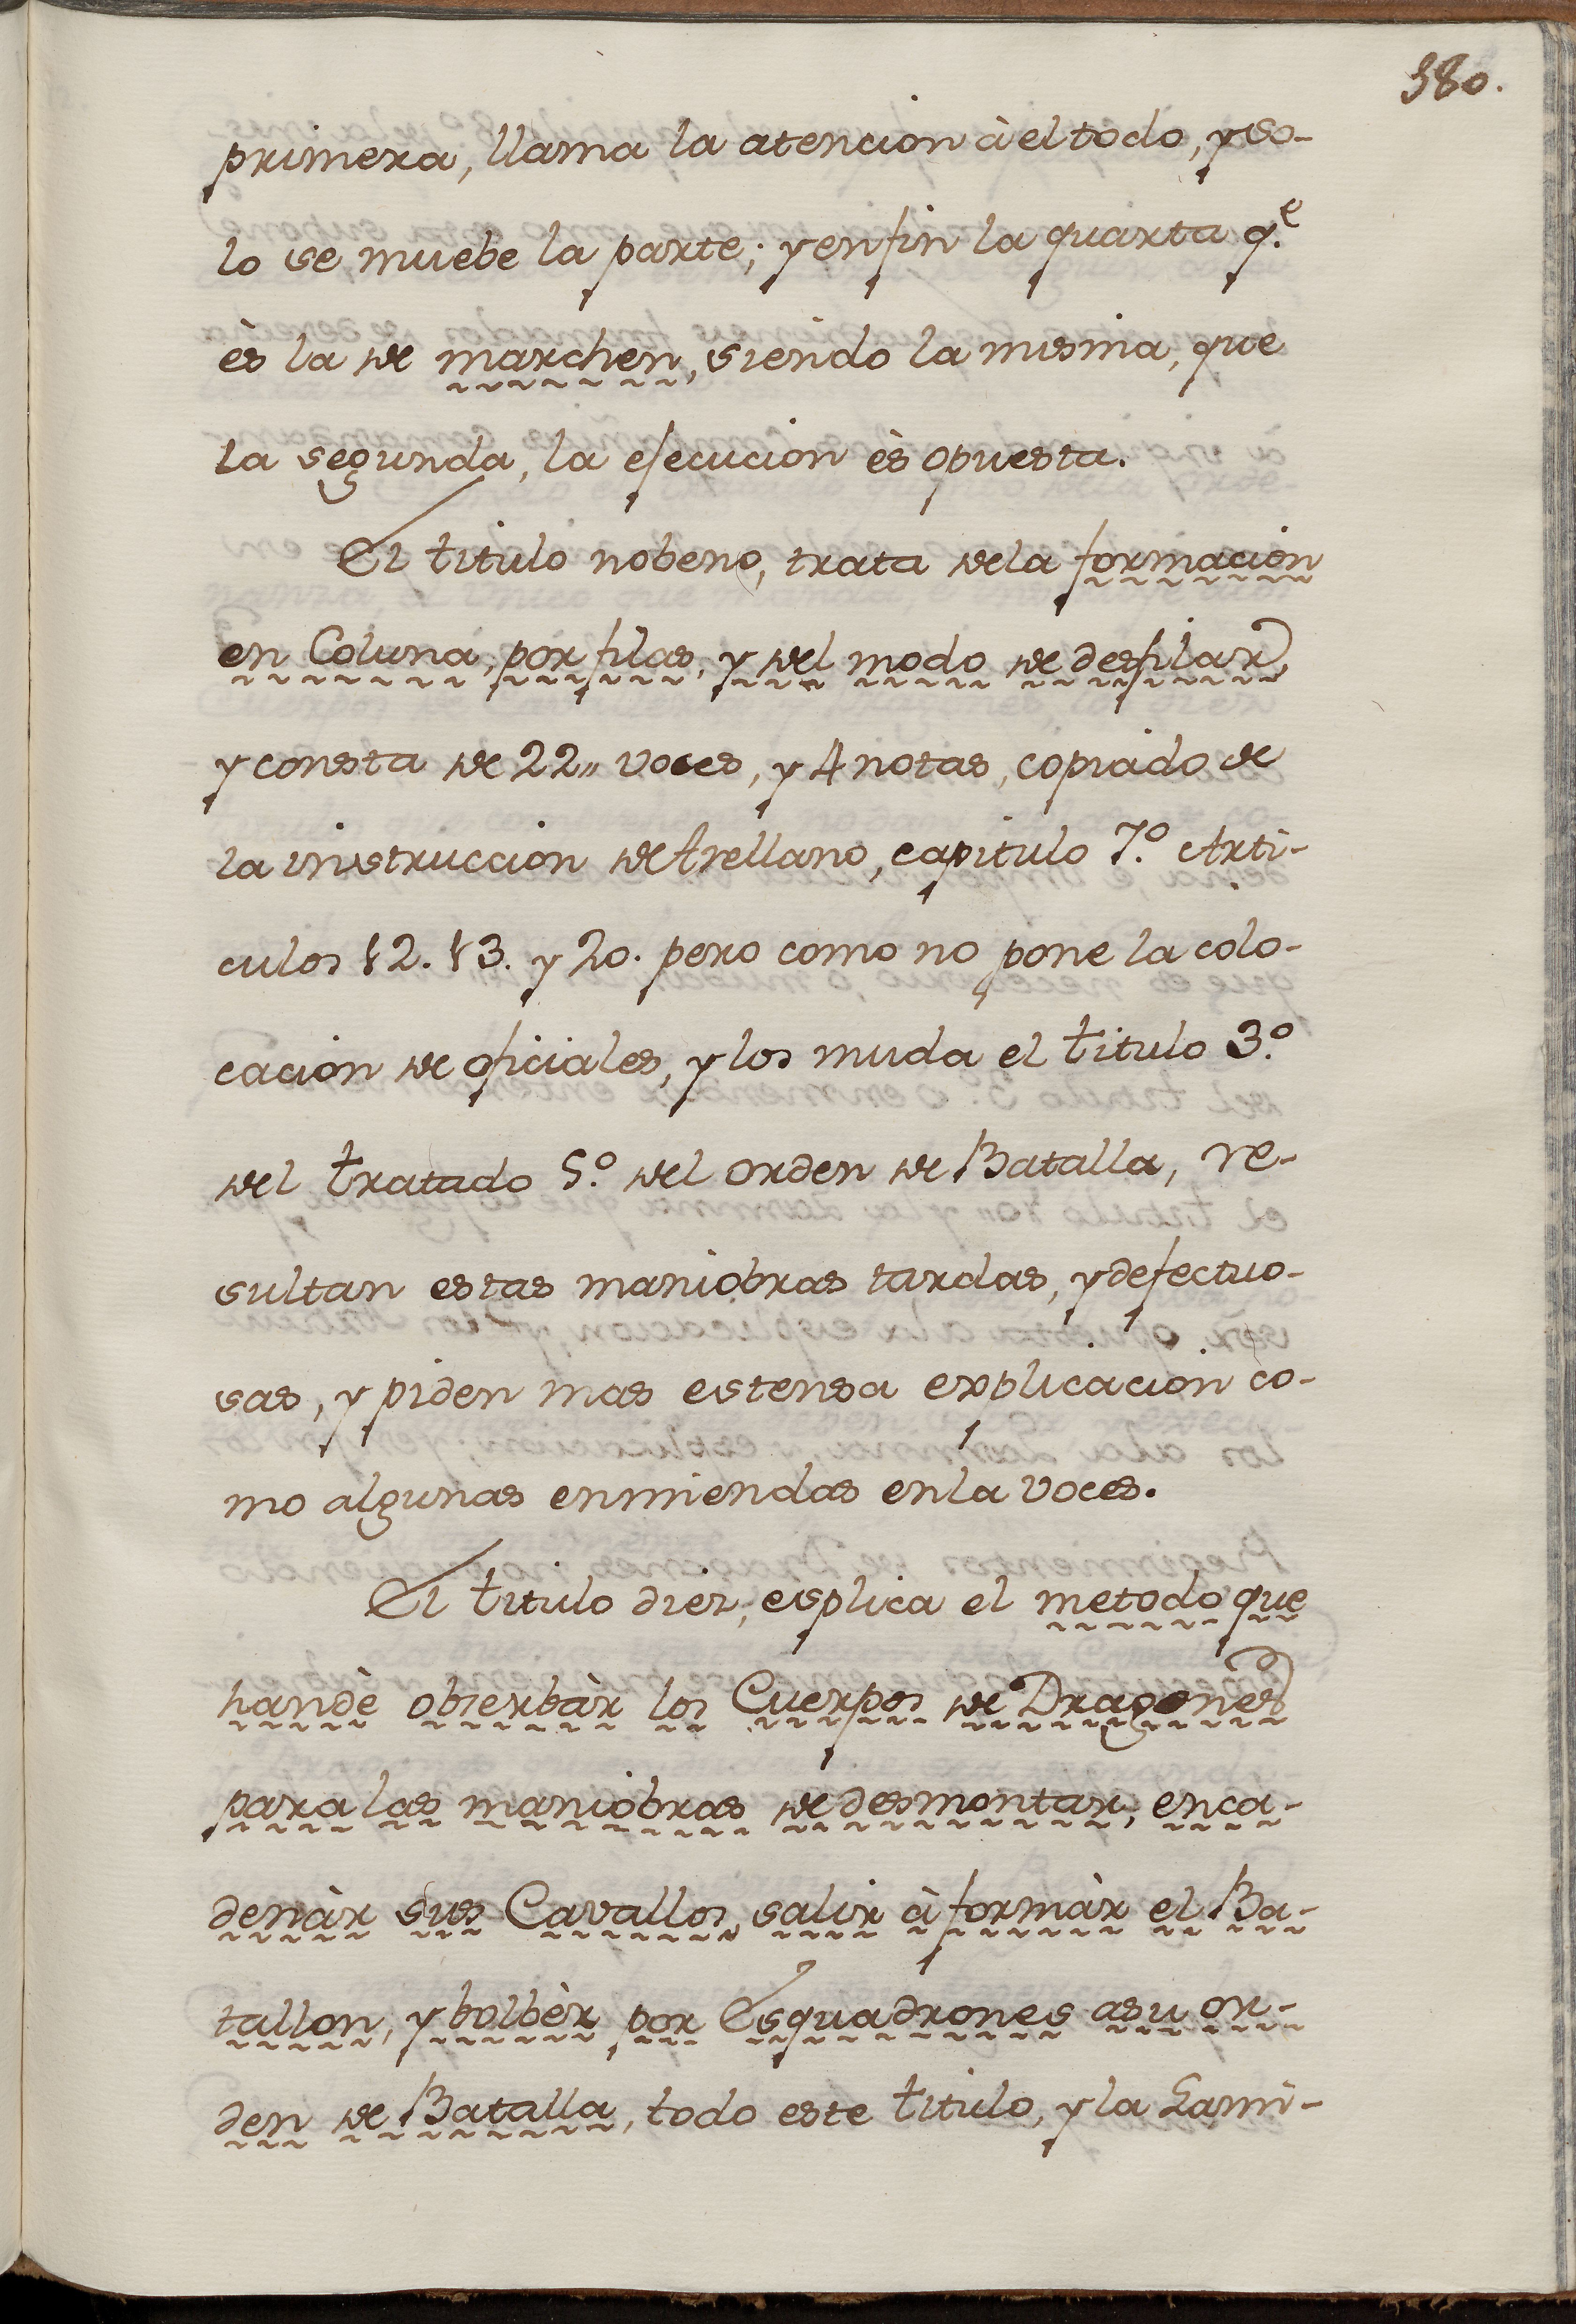 380.
primera, llama la atencion à el todo, y so-
lo se muebe la parte; y enfin la quarta q.e
ès la de marchen, siendo la misma, que
la segunda, la ejecucion ès opuesta.
El titulo nobeno, trata de la formacion
en Coluna, por filas, y del modo de desfilar,
y consta de 22,, voces, y 4 notas, copiado de
la instruccion de Arellano, capitulo 7.º Arti-
culos 12. 13. y 20. pero como no pone la colo-
cacion de oficiales, y los muda el titulo 3.º
del tratado 5.º del orden de Batalla, re-
sultan estas maniobras tardas, y defectuo-
sas, y piden mas estensa explicacion co-
mo algunas enmiendas en la voces.
El titulo diez, esplica el metodo que
handè obserbàr los Cuerpos de Dragones
para las maniobras de desmontar, enca-
denàr sus Cavallos, salir à formàr el Ba-
tallon, y bolbèr por Esquadrones asu or-
den de Batalla, todo este titulo, y la Lami-